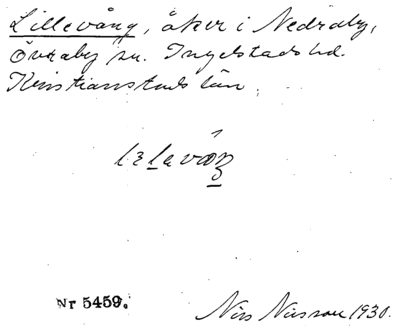 Lillevång, åker i Nedraby,
Övraby sn. Ingelstads hd.
Kristianstads län.
Nr 5459.
Nils Nilsson 1930.